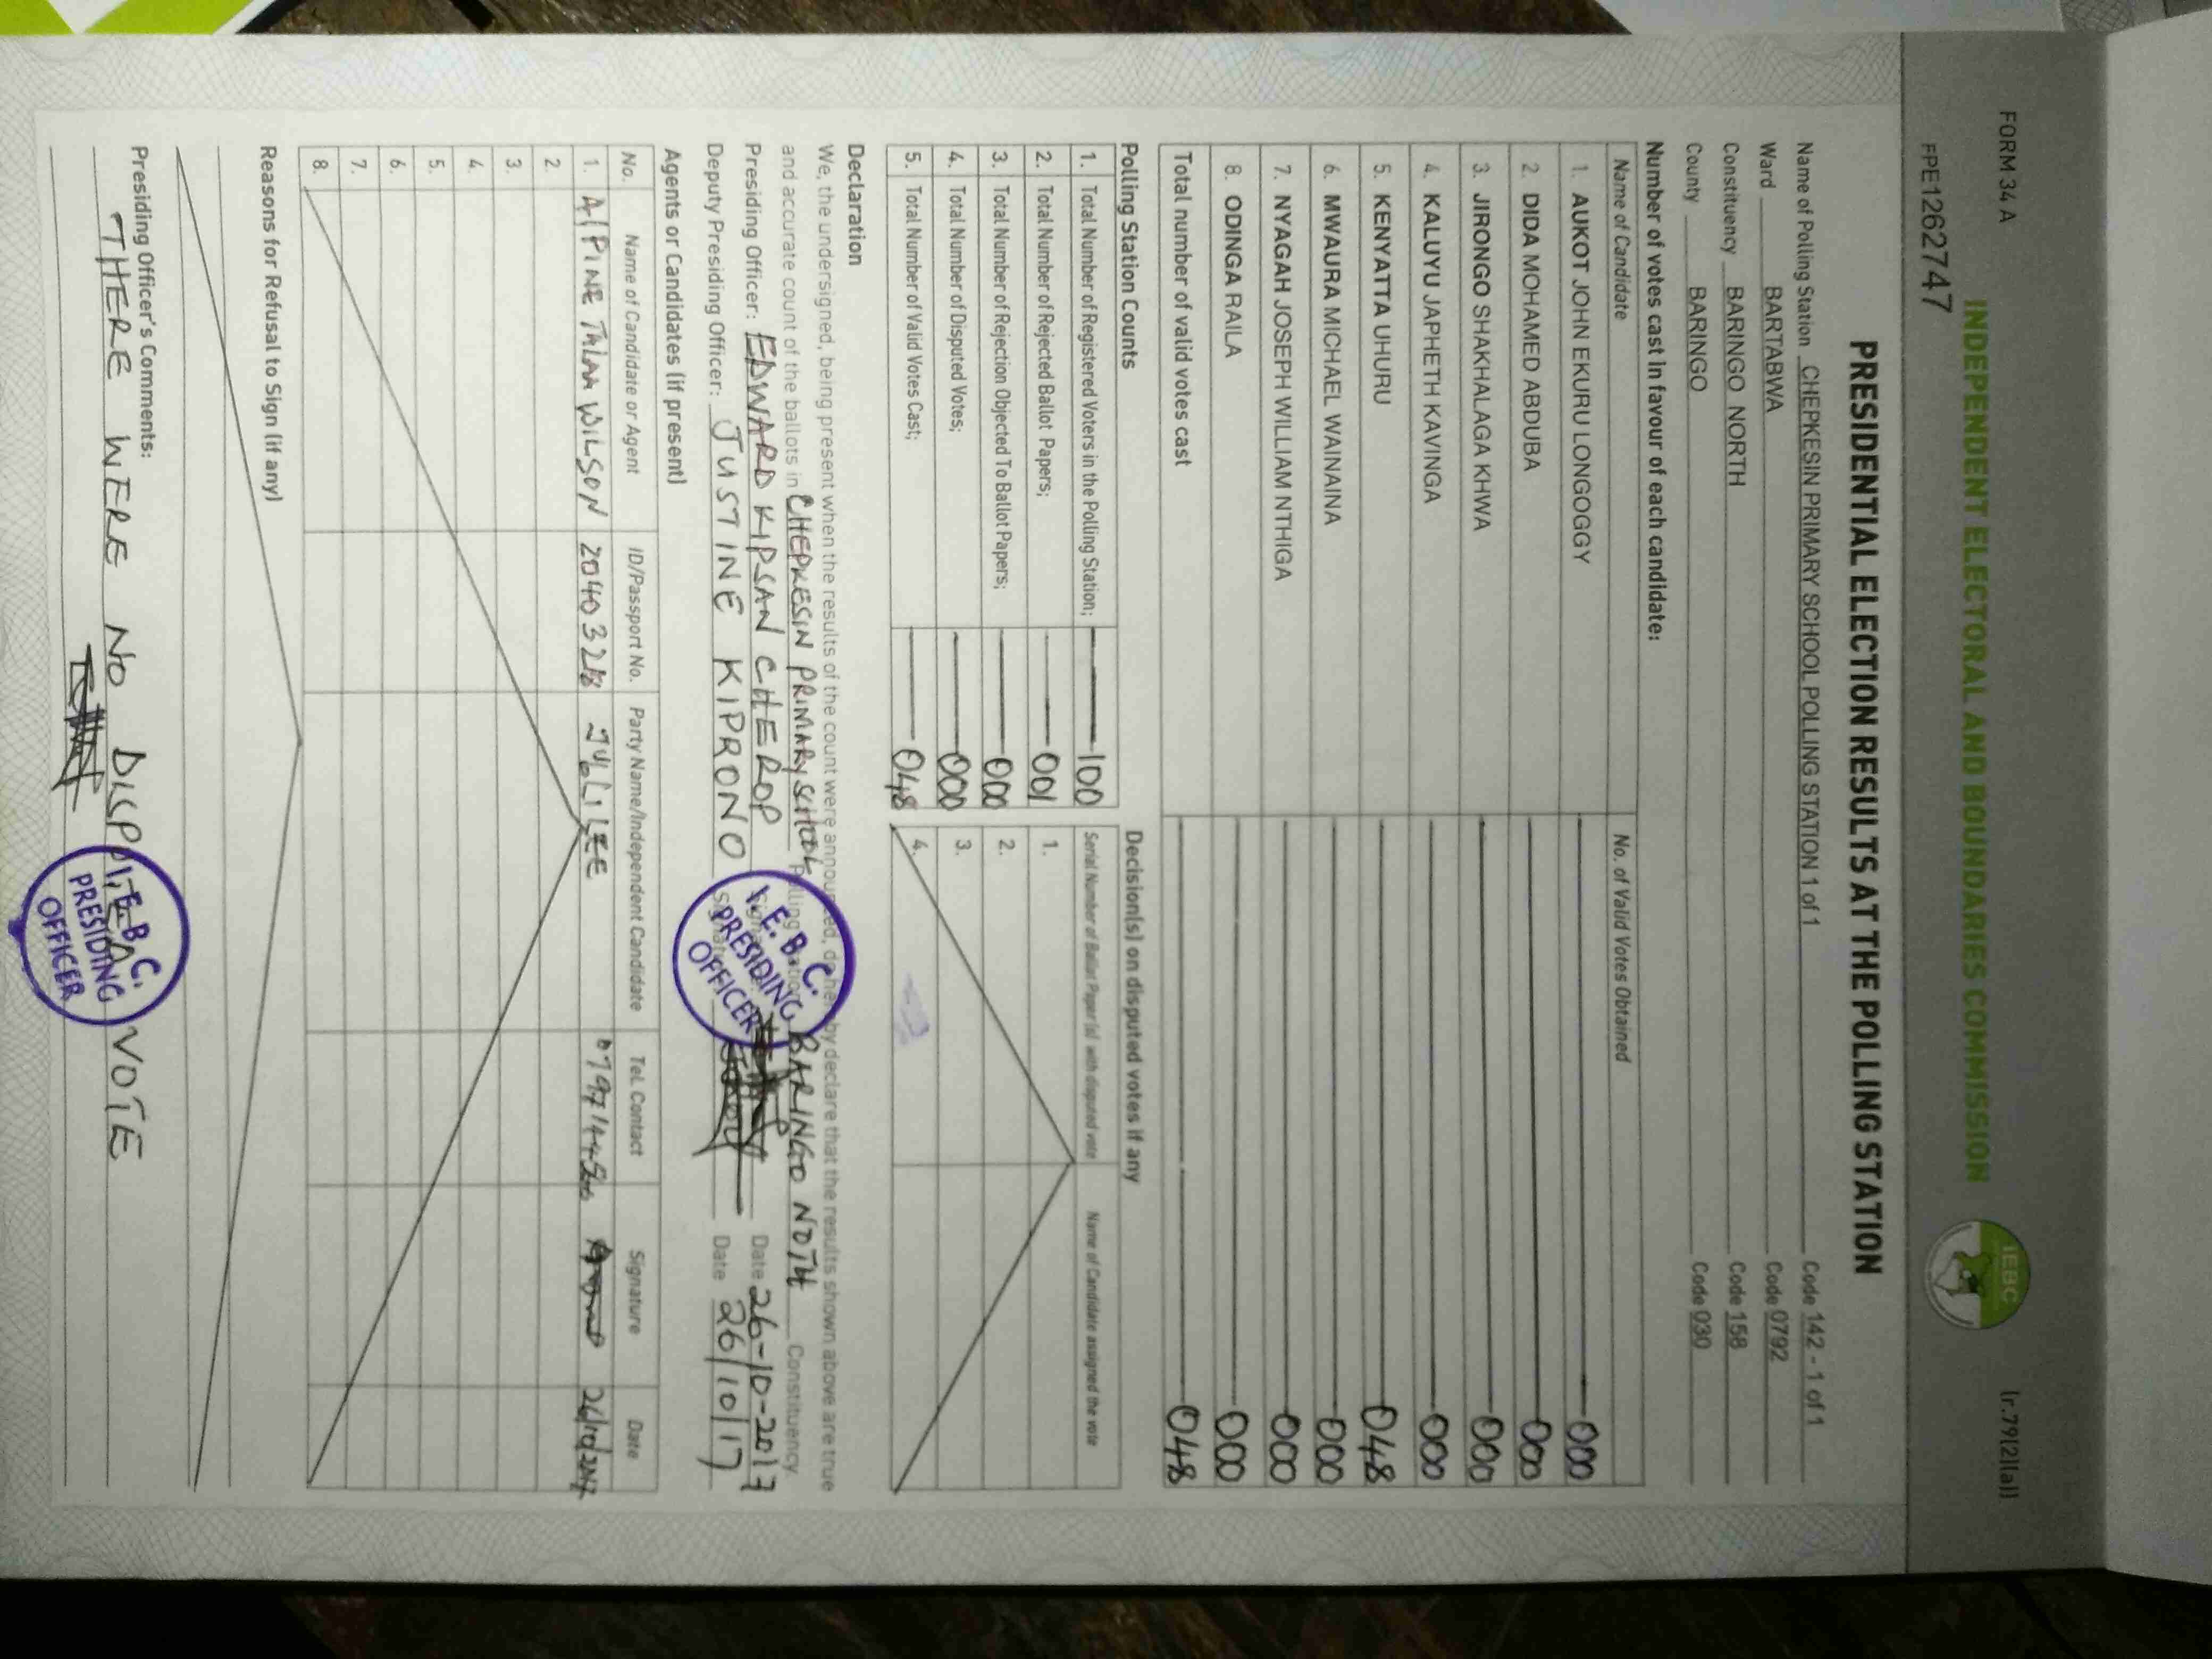 FORM 34 A
(r.79(2)(a))
INDEPENDENT ELECTORAL AND BOUNDARIES COMMISSION
IEBC
FPE1262747
PRESIDENTIAL ELECTION RESULTS AT THE POLLING STATION
Name of Polling Station CHEPKESIN PRIMARY SCHOOL POLLING STATION 1 of 1 Code 142 - 1 of 1
Ward BARTABWA Code 0792
Constituency BARINGO NORTH Code 158
County BARINGO Code 030
Number of votes cast in favour of each candidate:
Name of Candidate No. of Valid Votes Obtained
1. AUKOT JOHN EKURU LONGOGGY 000
2. DIDA MOHAMED ABDUBA 000
3. JIRONGO SHAKHALAGA KHWA 000
4. KALUYU JAPHETH KAVINGA 000
5. KENYATTA UHURU 048
6. MWAURA MICHAEL WAINAINA 000
7. NYAGAH JOSEPH WILLIAM NTHIGA 000
8. ODINGA RAILA 000
Total number of valid votes cast 048
Polling Station Counts
1. Total Number of Registered Voters in the Polling Station; 100
2. Total Number of Rejected Ballot Papers; 001
3. Total Number of Rejection Objected To Ballot Papers; 000
4. Total Number of Disputed Votes; 000
5. Total Number of Valid Votes Cast; 048
Decision(s) on disputed votes if any
Serial Number of Ballot Paper(s) with disputed vote Name of Candidate assigned the vote
1.
2.
3.
4.
Declaration
We, the undersigned, being present when the results of the count were announced, do hereby declare that the results shown above are true
and accurate count of the ballots in CHEPKESIN PRIMARY SCHOOL Polling Station BARINGO NOTH Constituency
Presiding Officer: EDWARD KIPSAN CHEROP Signature Date 26-10-2017
Deputy Presiding Officer: JUSTINE KIPRONO Signature Date 26/10/17
I.E.B.C.
PRESIDING
OFFICER
Agents or Candidates (if present)
No. Name of Candidate or Agent ID/Passport No. Party Name/Independent Candidate Tel. Contact Signature Date
1. WILSON
2.
3.
4.
5.
6.
7.
8.
Reasons for Refusal to Sign (if any)
Presiding Officer's Comments:
THERE WERE NO DISPUTED VOTE
I.E.B.C.
PRESIDING
OFFICER